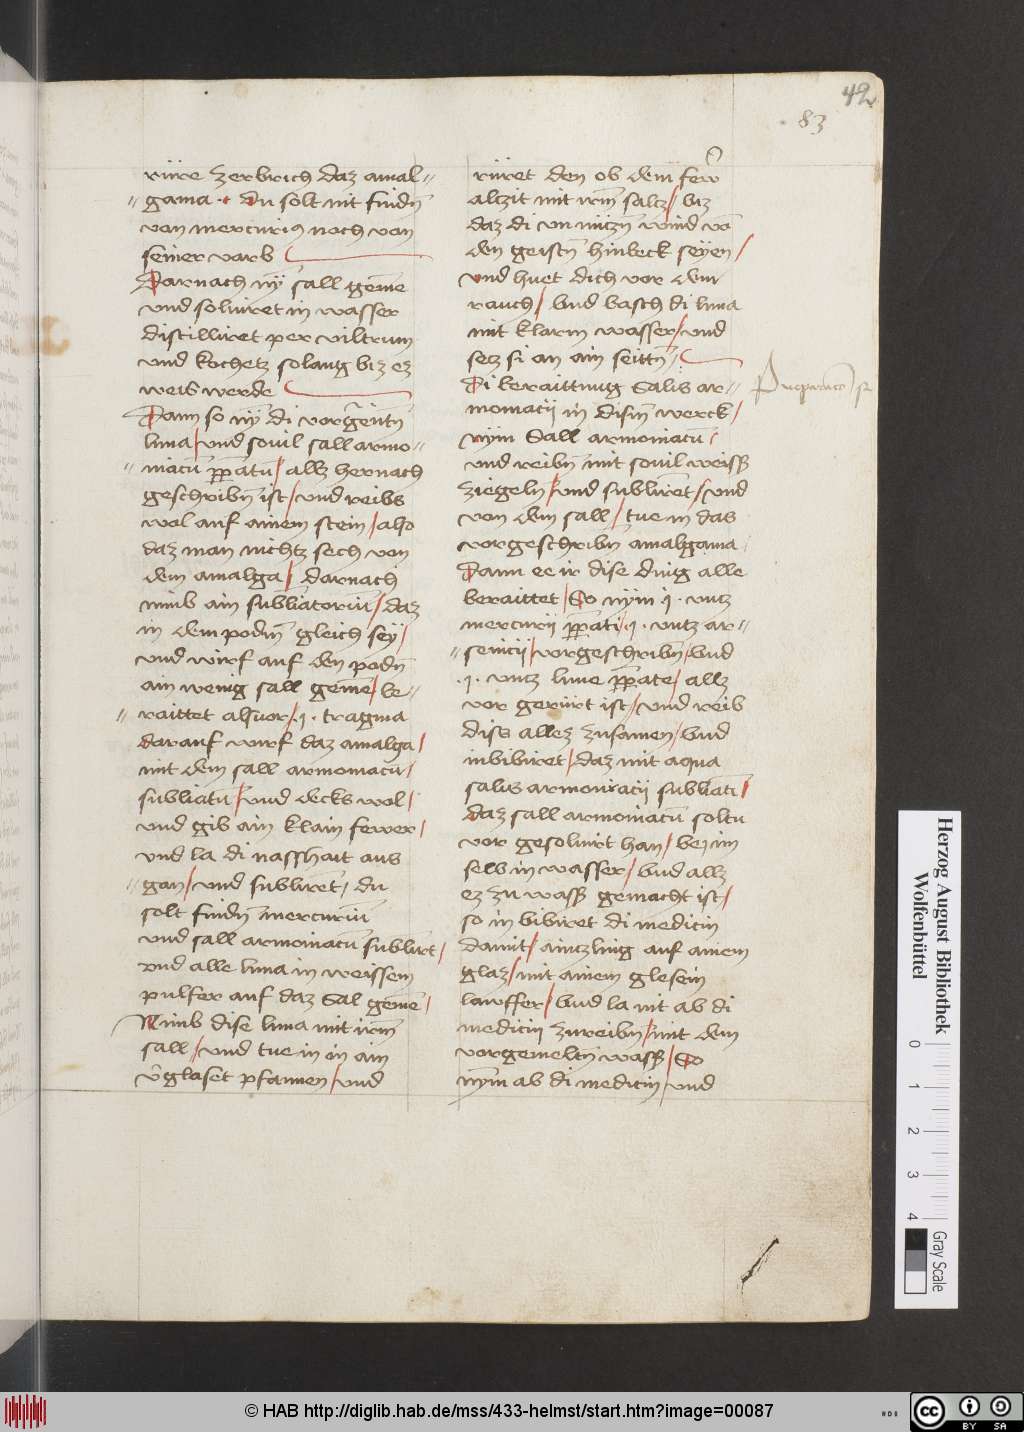 42
83
rüre zerbrich daz amal=
=gama · du solt nit findn̄
von mercurius noch von
seiner varb
Darnach nȳ sall gem̄e
vnd soluiret in wasser
distilliret per viltrum
vnd kochetz solang biz ez
weis werde
Dann so nȳ di vorgen̄tn̄
luna / vnd souil sall armo=
=niacū pp̄atū / allz hernach
geschribn̄ ist / vnd reibs
wol auf ainem stein / also
daz man nichtz sech von
dem amalga / darnach
nimb ain subliatoriū / daz
in dem podn̄ gleich seÿ /
vnd wirf auf den podn̄
ain wenig sall gem̄e / be=
=raittet alsuor / .j. tragma
darauf wirf daz amalga /
mit dem sall armoniacū /
subliatū / vnd decks wol /
vnd gib ain klain fewer /
vnd la di nasshait aus
=gan / vnd sublirēt / du
solt findn̄ mercuriū
vnd sall armoniacū sublirt /
vnd alle luna in weissem
pulfer auf daz sal gem̄e /
Nimb dise luna mit irm̄
sall / vnd tue in in ain
v̄glaset pfannen / vnd
rüret den ob dem fewr
alczit mit irm̄ saltz / biz
daz di vn nützn̄ wind vō
den geistn̄ hinbeck seyen /
vnd huet dich vor dem
rauch / vnd basch di luna
mit klarm wasser / vnd
secz si an ain seittn̄ /
Di beraittnug Salis ar=
moniacij in disem̄ werck /
nÿm Sall armoniacū /
vnd reibn̄ mit souil weiss
ziegeln / vnd subliret / vnd
von dem sall / tue in das
vorgeschribn amalgama
Dann ee ir dise ding alle
beraittet / So nÿm j · vntz
mercurij pp̄ati · j · vntz ar=
=senicij / vorgeschribn̄ / vnd
· j · vntz lune pp̄ate / allz
vor gerürt ist / vnd reib
diss allez zusamen / vnd
inbibiret / daz mit aqua
salis armoniacij subliati /
daz sall armoniacū soltu
vor gesoluirt han / bej im
selb in wasser / vnd allz
ez zu wass gemacht ist /
so in bibiret di medicin
damit / aintzling auf ainem
glaz / mit ainem glesein
lawffer / vnd la nit ab di
medicin zureibn̄ / mit dem
vorgemeltn̄ wass / So
nÿm ab di medicin / vnd
Herzog August Bibliothek
Wolfenbüttel
0 1 2 3 4
Gray Scale
© HAB http://diglib.hab.de/mss/433-helmst/start.htm?image=00087
cc BY SA